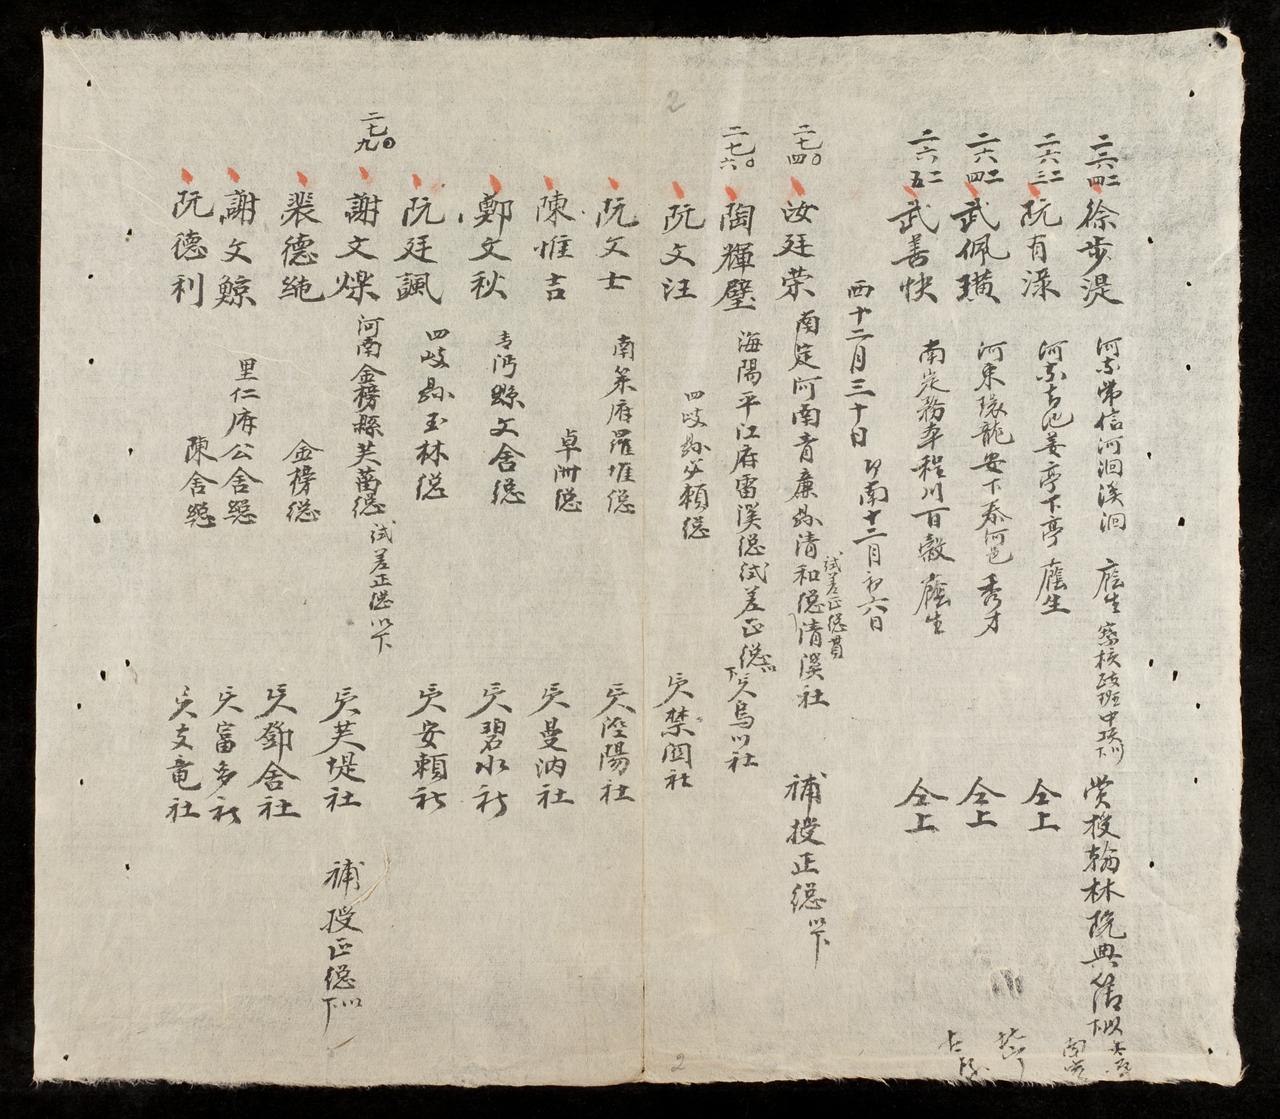 二六四二 徐步湜 河東常信河洄溪洄 廕生 察核政班中項以下 賞授翰林院典籍以下
二六三二 阮有渌 河東 姜亭下亭 廕生 仝上
二六四二 武佩璜 河東環龍安下泰河邑 秀才 仝上
二六五二 武善快 南定務本程川百穀 廕生 仝上
西十二月三十日 即南十二月初六日
二七四〇 汝廷荣 南定河南青廉县清和總清溪社 試差正總貫 補授正總以下
二七六〇 陶輝璧 海陽平江府雷溪總試差正總以下 貫烏以社
阮文汪 四岐县必賴總 貫禁園社
阮文士 南策府羅堆總 貫陸陽社
陳惟吉 卓洲總 貫曼汭社
鄭文秋 青沔縣文舍總 貫碧水社
阮廷諷 四岐县玉林總 貫安賴社
二七九〇 謝文燦 河南金榜縣芙萬總 試差正總以下 貫芙堤社 補授正總以下
裴德純 金榜總 貫鄧舍社
謝文鯨 里仁府公舍總 貫富多社
阮德利 陳舍總 貫支竜社
2
2